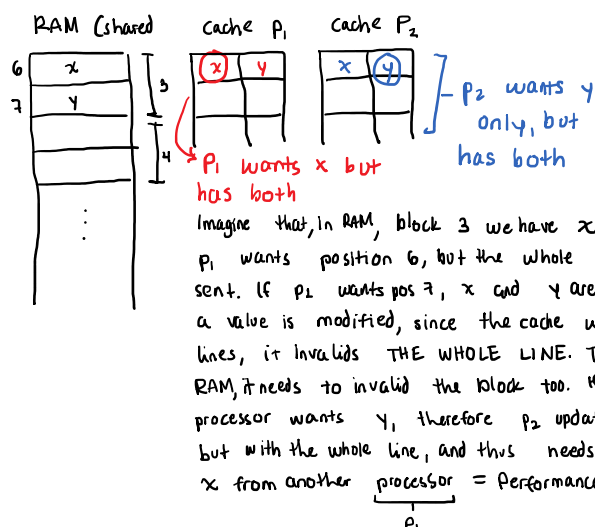 RAM (shared
cache P1
cache P2
6
x
3
7
y
4
x
y
x
y
P2 wants y
only, but
has both
P1 wants x but
has both
Imagine that, in RAM, block 3 we have x
P1 wants position 6, but the whole
sent. If P2 wants pos 7, x and y are
a value is modified, since the cache w
lines, it invalids THE WHOLE LINE. T
RAM, it needs to invalid the block too. H
processor wants y, therefore P2 updat
but with the whole line, and thus needs
x from another processor = Performance
P1